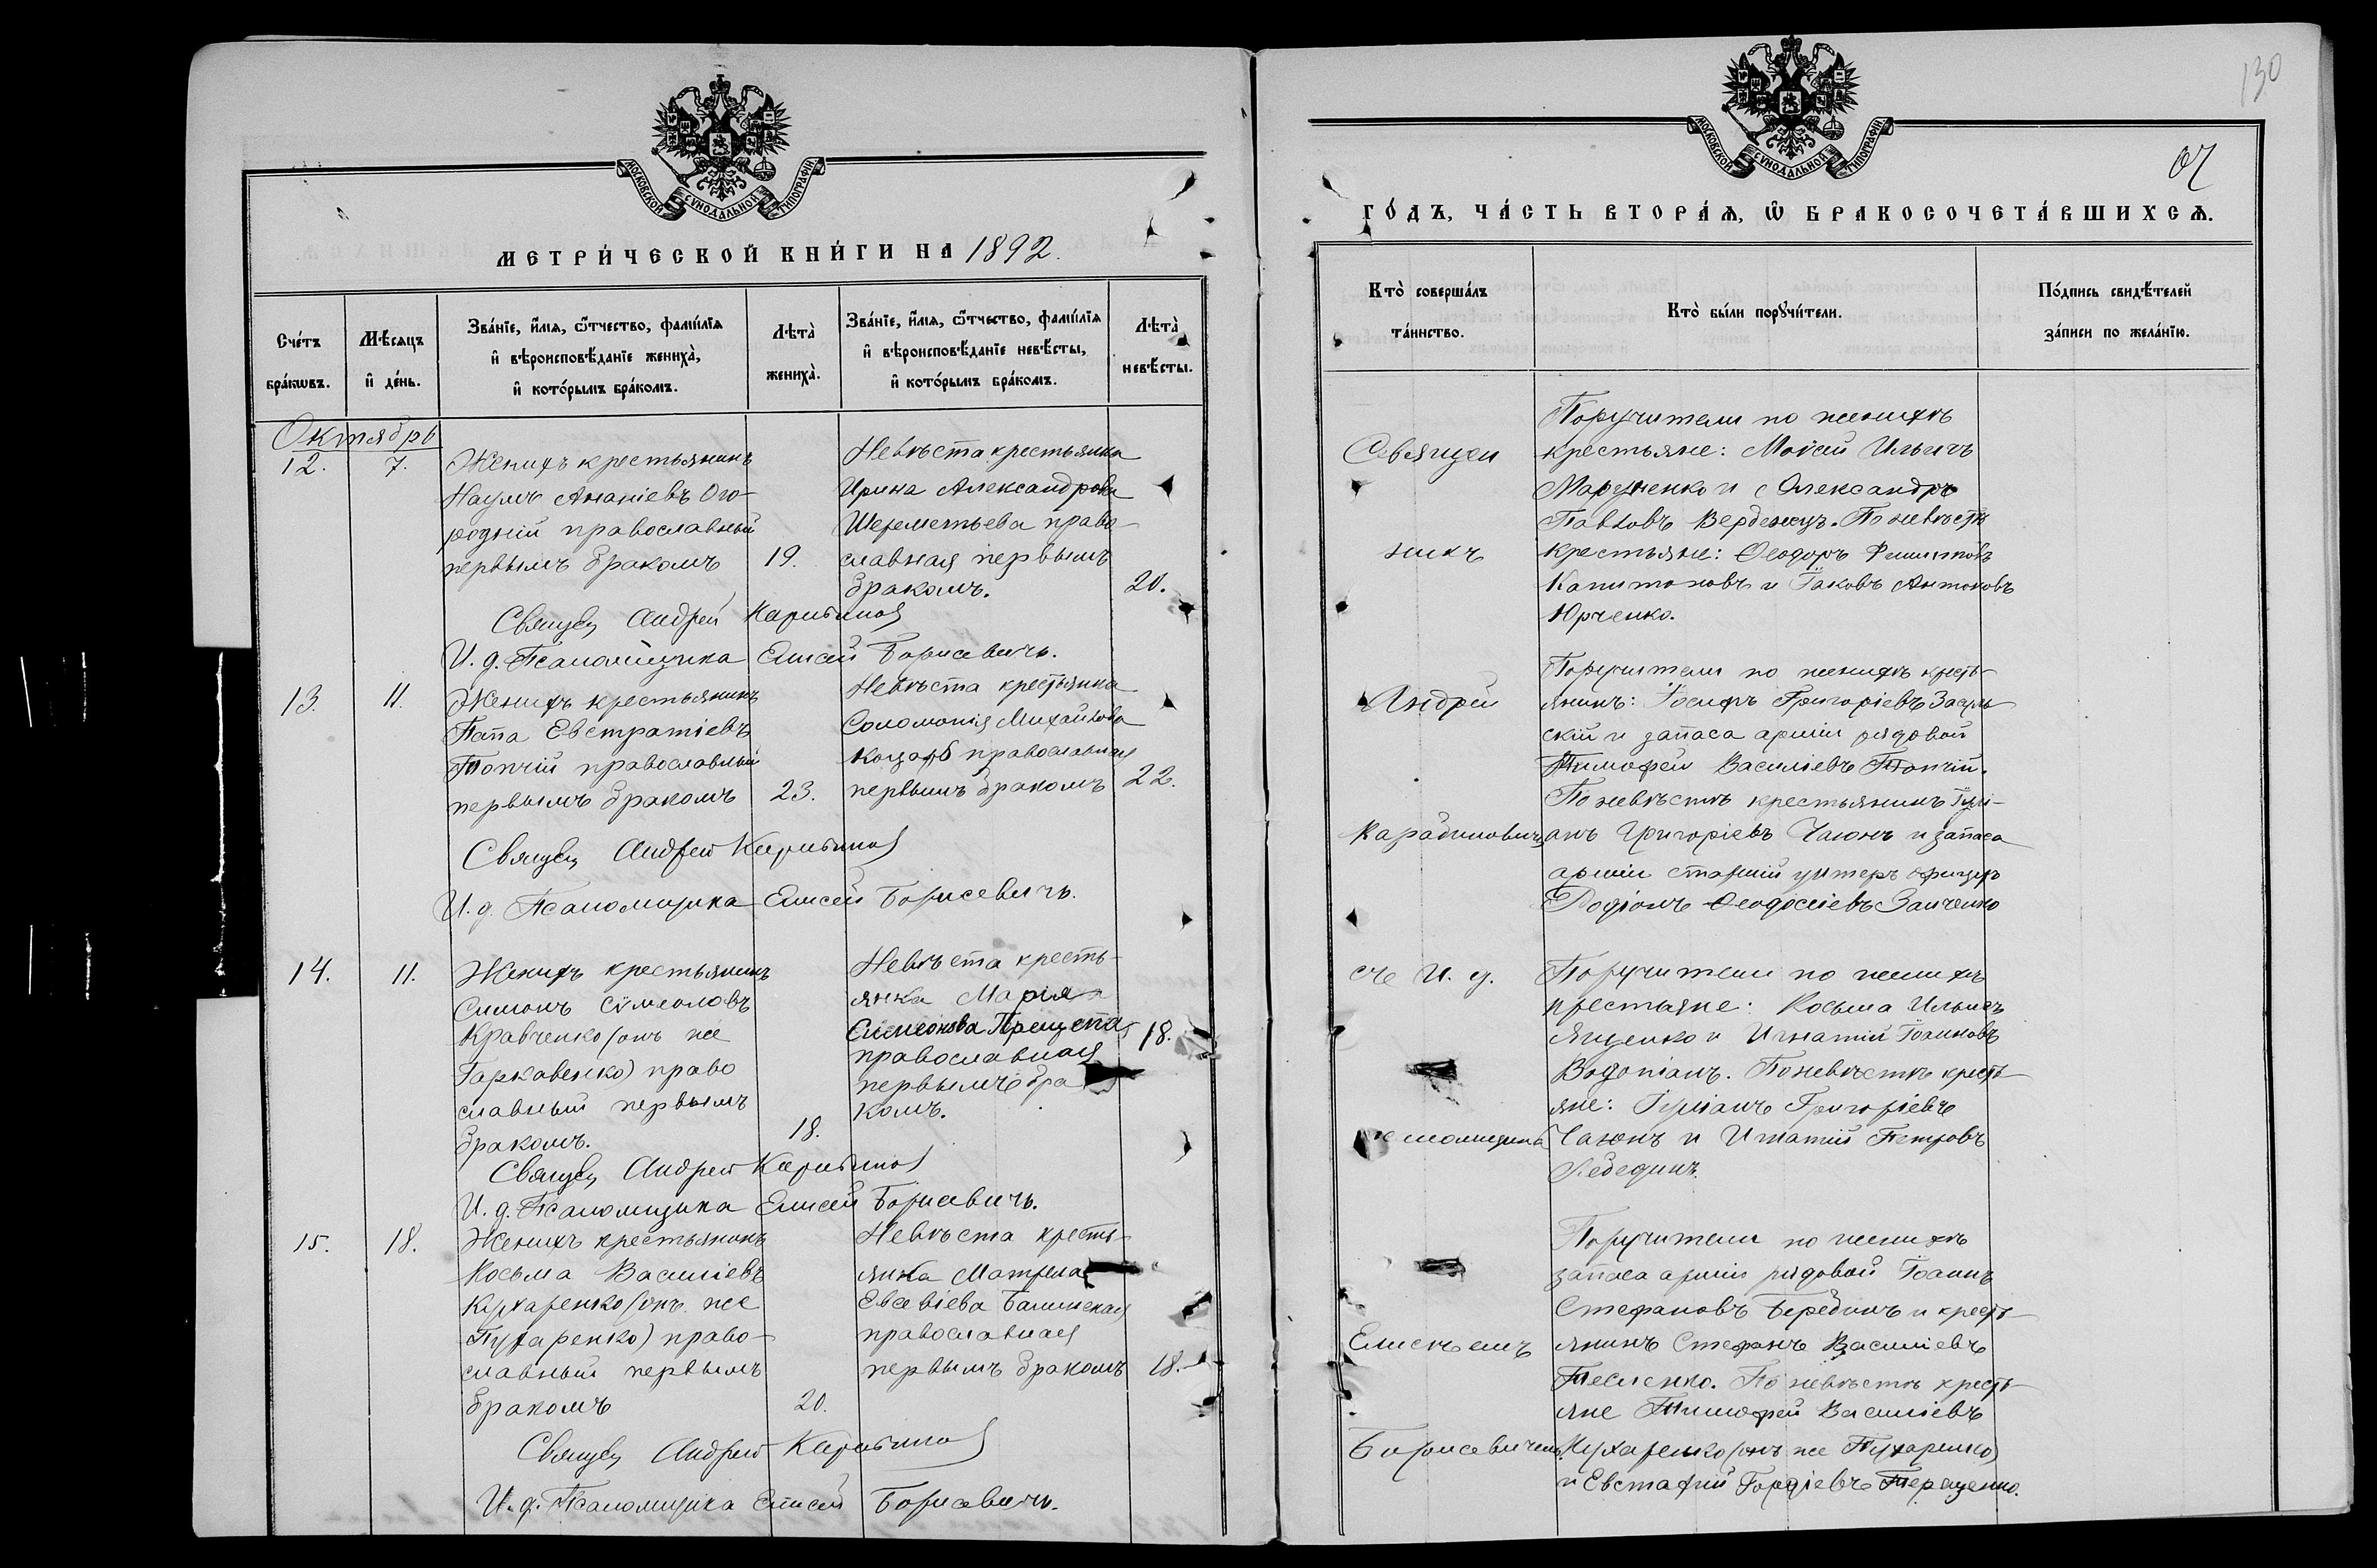 МОСКОВСКОЙ СѴНОДАЛЬНОЙ ТИПОГРАФІИ
МЕТРИ́ЧЕСКОЙ КНИ́ГИ НА 1892.
Сче́тъ бра́кѡвъ.
Мѣ́сяцъ и҆ де́нь.
Зва́нїе, и҆́мѧ, ѻ҆́тчество, фамі́лїѧ
и҆ вѣроисповѣ́данїе жениха̀,
и҆ кото́рымъ бра́комъ.
Лѣта̀ жениха̀.
Зва́нїе, и҆́мѧ, ѻ҆́тчество, фамі́лїѧ
и҆ вѣроисповѣ́данїе невѣ́сты,
и҆ кото́рымъ бра́комъ.
Лѣта̀ невѣ́сты.
Октябрь
12. 7.
Женихъ крестьянинъ
Наумъ Ананіевъ Ого-
родній православный
первымъ бракомъ 19.
Невѣста крестьянка
Ирина Александрова
Шереметьева право-
славная первымъ
бракомъ. 20.
Священ Андрей
И. д. Псаломщика Елисей Борисевичъ.
13. 11.
Женихъ крестьянинъ
Папа Евстратіевъ
Топчій православный
первымъ бракомъ 23.
Невѣста крестьянка
Соломонія Михайлова
Коцарь православная
первымъ бракомъ 22.
Священ Андрей
И. д. Псаломщика Елисей Борисевичъ.
14. 11.
Женихъ крестьянинъ
Симонъ Сѵмеоновъ
Кравченко (онъ же
Гаркавенко) право
славный первымъ
бракомъ. 18.
Невѣста кресть-
янка Марія
Симеонова
православная 18.
первымъ бра
комъ.
Священ Андрей
И. д. Псаломщика Елисей Борисевичъ.
15. 18.
Женихъ крестьянинъ
Косьма Василіевъ
Кухаренко (онъ же
Пухаренко) право-
славный первымъ
бракомъ 20.
Невѣста кресть-
янка Матрена
Евсевіева
православная
первымъ бракомъ 18.
Священ Андрей
И. д. Псаломщика Елисей Борисевичъ.
130
МОСКОВСКОЙ СѴНОДАЛЬНОЙ ТИПОГРАФІИ
ГО́ДЪ, ЧА́СТЬ ВТОРА́Ѧ, Ѡ҆ БРАКОСОЧЕТА́ВШИХСѦ.
Кто̀ соверша́лъ
та́инство.
Кто̀ бы́ли порꙋчи́тели.
По́дпись свидѣ́телей
за́писи по жела́нїю.
Священ
никъ
Андрей
Карабиновичъ
съ И. д.
Елисеемъ
Борисевичемъ.
Поручители по женихѣ
крестьяне: Моѵсей Ильичъ
и Александръ
Павловъ Вербецъ. По невѣстѣ
крестьяне: Ѳеодоръ
Капитоновъ и Іаковъ Антоновъ
Юрченко.
Поручители по женихѣ кресть-
янинъ: Іосифъ Григоріевъ Засуль-
скій и запаса арміи рядовой
Тимофей Василіевъ Топчій.
По невѣстѣ крестьянинъ Іулі-
анъ Григоріевъ Чаюнъ и запаса
арміи старшій унтеръ офицеръ
Родіонъ Ѳеодосіевъ Заиченко
Поручители по женихѣ
крестьяне: Косьма Ильичъ
Яценко и Игнатій Іоанновъ
Водопіанъ. По невѣстѣ кресть-
яне: Іуліанъ Григоріевъ
Чаюнъ и Игнатій Петровъ
Лебединъ.
Поручители по женихѣ
запаса арміи рядовой Іоаннъ
Стефановъ и кресть-
янинъ Стефанъ Василіевъ
Тесленко. По невѣстѣ кресть-
яне Тимофей Василіевъ
Кухаренко (онъ же Пухаренко)
и Евстафий Гордіевъ Терещенко.